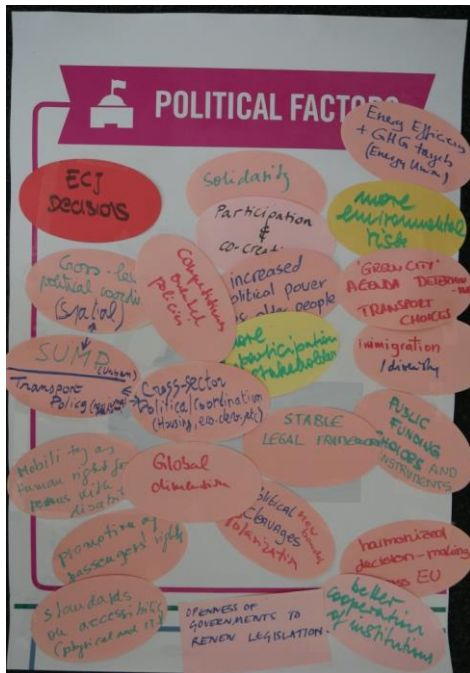 POLITICAL FACTORS
Energy Efficiency
+ GHG targets
(Energy Union)
ECJ
DECISIONS
Solidarity
more
environmental
risk
Participation
&
co-creati
Cross-level
political coordin
(spatial)
Competitiveness
oriented
policies
increased
political power
older people
'GREEN CITY'
AGENDA
TRANSPORT
CHOICES
more
participation
stakeholders
immigration
/ diversity
SUMP (urban)
Transport
Policy
Cross-sector
Political Coordination
(Housing, eco. dev., etc)
STABLE
LEGAL FRAMEWORK
PUBLIC
FUNDING
CHOICES AND
INSTRUMENTS
Mobility as
Human right for
persons with
disabi
Global
dimension
political new
cleavages
Polarization
promotion of
passengers' rights
harmonized
decision-making
EU
standards
on accessibility
(physical and IT)
OPENNESS OF
GOVERNMENTS TO
RENEW LEGISLATION.
better
cooperation
of institutions